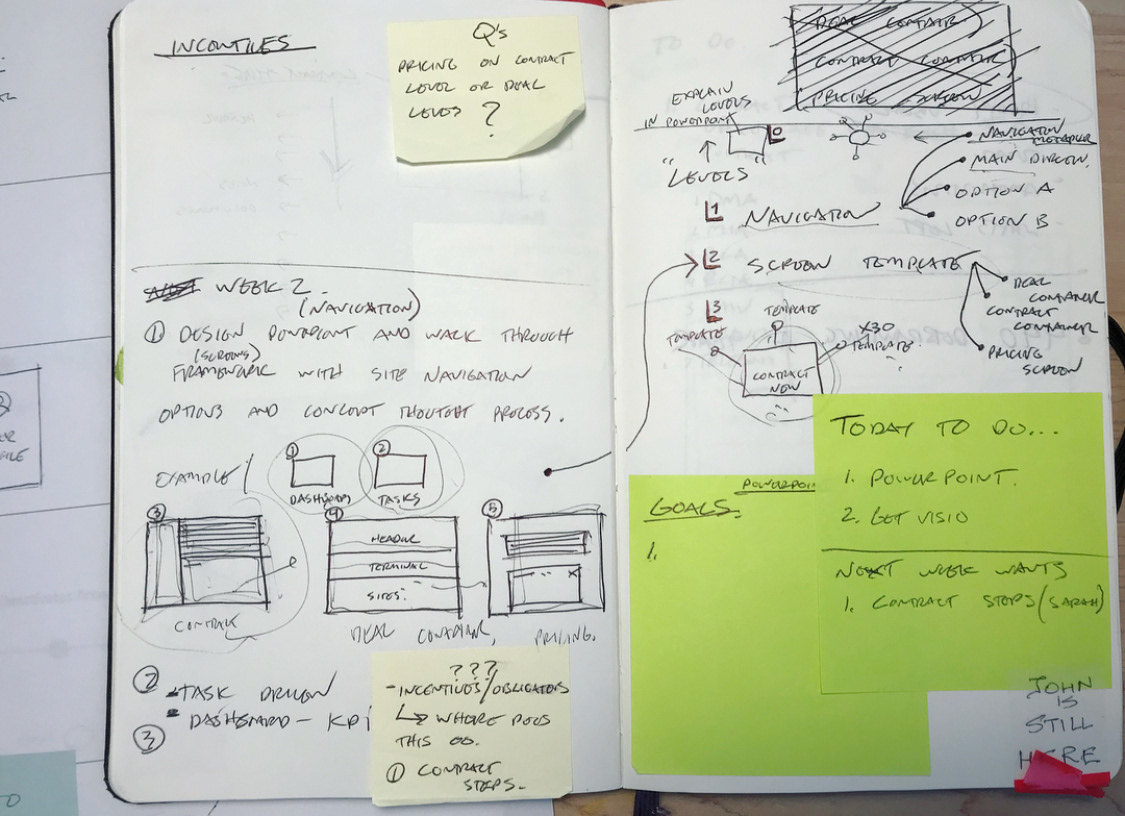 INCONTIVES
Q's
PRICING ON CONTRACT
LEVEL OR DEAL
LEVELS ?
WEEK 2.
(NAVIGATION)
① DESIGN POWERPOINT AND WALK THROUGH
(SCREENS)
FRAMEWORK WITH SITE NAVIGATION
OPTIONS AND CONCEPT THOUGHT PROCESS.
EXAMPLE
① ②
DASHBOARD TASKS
③ ④ ⑤
HEADER
TERMINAL
SITES:
CONTRACT
DEAL CONTAINER, PRICING.
② - TASK DRIVEN
- DASHBOARD - KPI
③
???
- INCENTIVES/OBLIGATORS
WHERE DOES
THIS GO.
① CONTRACT
STEPS.
DEAL CONTAINER
CONTRACT CONTAINER
PRICING SCREEN
EXPLAIN
LEVELS
IN POWERPOINT
L0
"LEVELS"
NAVIGATION
MAIN DIRECTION.
OPTION A
OPTION B
L1 NAVIGATION
L2 SCREEN TEMPLATE
DEAL
CONTAINER
CONTRACT
CONTAINER
PRICING
SCREEN
L3
TEMPLATE
TEMPLATE
X30
TEMPLATE
CONTRACT
NOW
TODAY TO DO...
1. POWERPOINT.
2. GET VISIO
NEXT WEEK WANTS
1. CONTRACT STEPS (SARAH)
POWERPOINT
GOALS.
1.
JOHN
IS
STILL
HERE